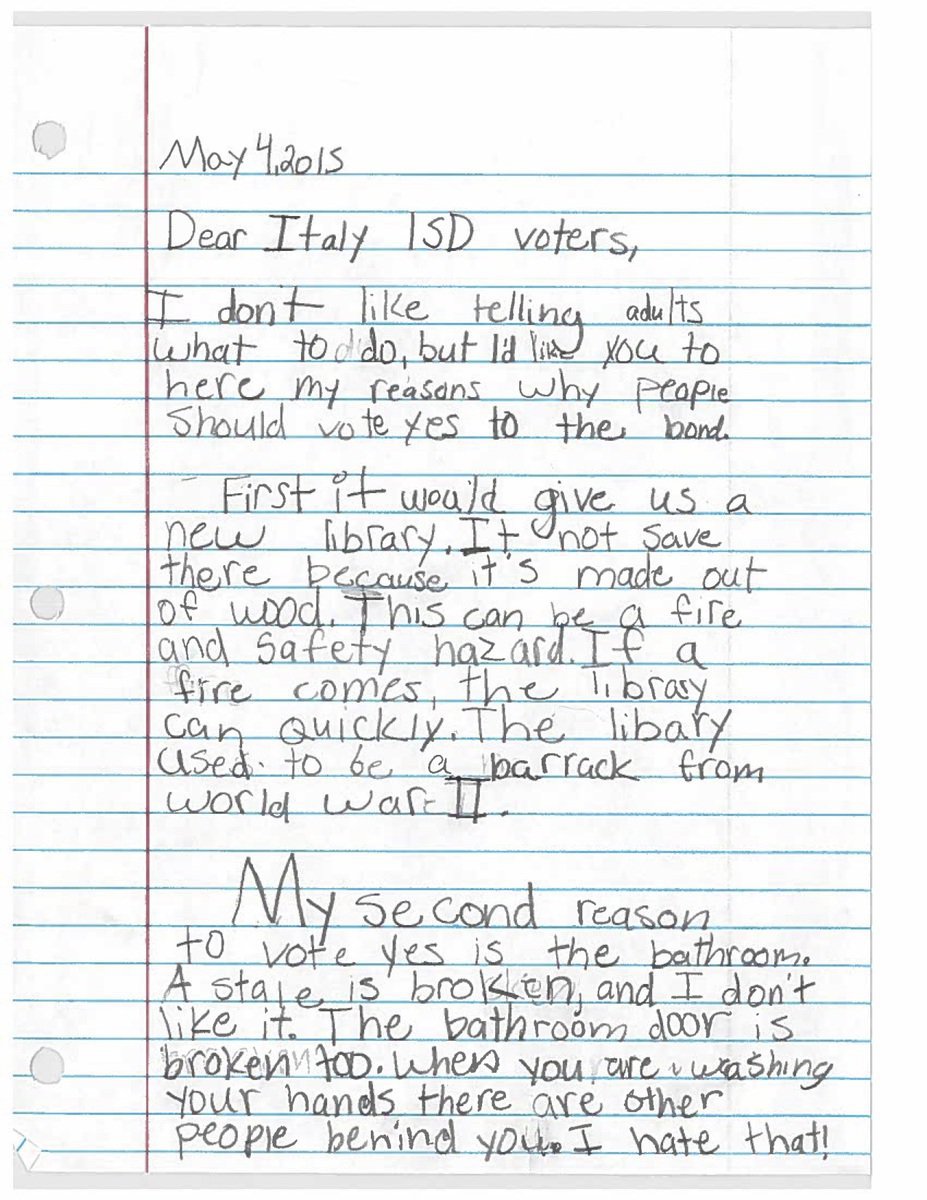 May 4,2015
Dear Italy ISD voters,
I don't like telling adults
what to do, but I'd like you to
here my reasons why people
should vote yes to the bond.
First it would give us a
new library. It not save
there because it's made out
of wood. This can be a fire
and safety hazard. If a
fire comes, the library
can quickly. The libary
used to be a barrack from
world war II.
My second reason
to vote yes is the bathroom.
A stale is broken, and I don't
like it. The bathroom door is
broken too. When you are washing
your hands there are other
people behind you. I hate that!